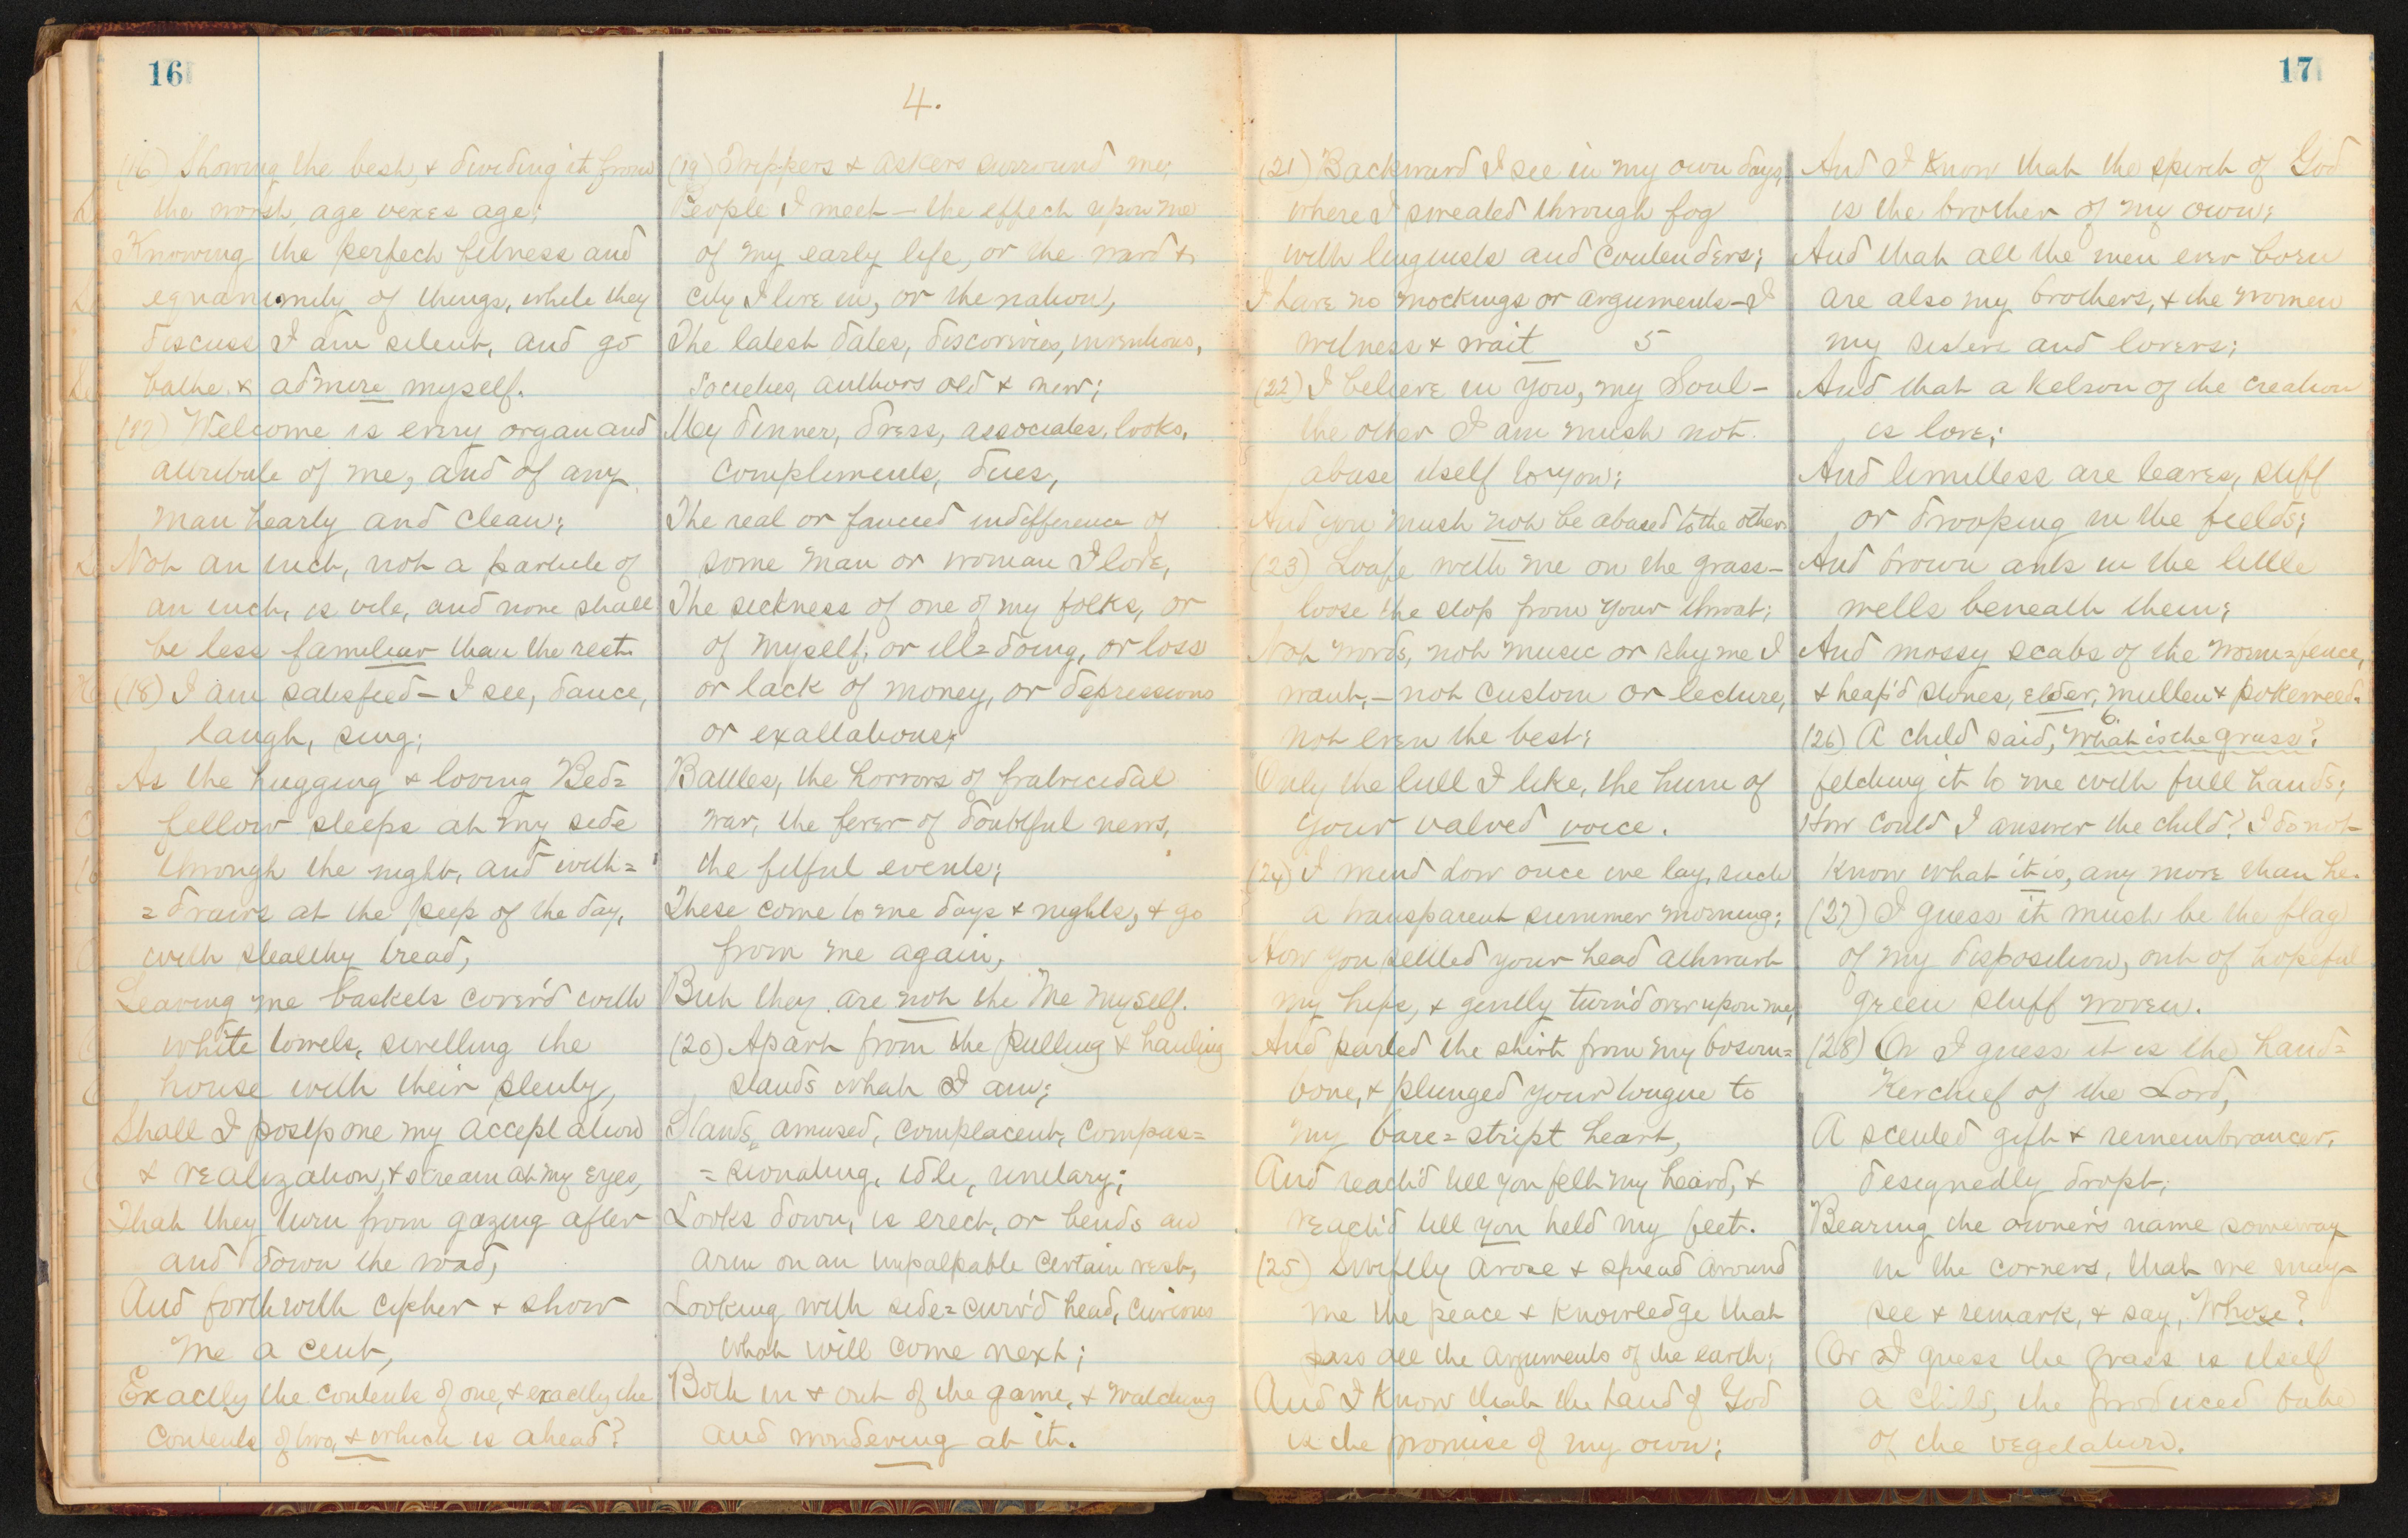 16
(16) Showing the best, & dividing it from
the worst, age vexes age;
Knowing the perfect fitness and
equanimity of things, while they
discuss I am silent, and go
bathe & admire myself.
(17) Welcome is every organ and
attribute of me, and of any
man hearty and clean;
Not an inch, not a particle of
an inch, is vile, and none shall
be less familiar than the rest.
(18) I am satisfied – I see, dance,
laugh, sing;
As the hugging & loving Bed=
fellow sleeps at my side
through the night, and with=
=draws at the peep of the day,
with stealthy tread,
Leaving me baskets cover'd with
white towels, swelling the
house with their plenty,
Shall I postpone my acceptation
& realization, & scream at my eyes,
That they turn from gazing after
and down the road,
And forthwith cipher & show
me a cent,
Exactly the contents of one, & exactly the
contents of two, & which is ahead?
4.
(19) Trippers & askers surround me;
People I meet – the effect upon me
of my early life, or the ward &
city I live in, or the nation,
The latest dates, discoveries, inventions,
societies, authors old & new;
My dinner, dress, associates, looks,
compliments, dues,
The real or fancied indifference of
some man or woman I love,
The sickness of one of my folks, or
of myself, or ill=doing, or loss
or lack of money, or depressions
or exaltations;
Battles, the horrors of fratricidal
war, the fever of doubtful news,
the fitful events;
These come to me days & nights, & go
from me again,
But they are not the Me myself.
(20) Apart from the pulling & hauling
stands what I am;
Stands amused, complacent, compas=
=sionating, idle, unitary;
Looks down, is erect, or bends an
arm on an impalpable certain rest,
Looking with side=curv'd head, curious
what will come next;
Both in & out of the game, & watching
and wondering at it.
17
(21) Backward I see in my own days,
where I sweated through fog
with linguists and contenders;
I have no mockings or arguments – I
witness & wait
5
(22) I believe in you, my Soul –
the other I am must not
abase itself to you;
And you must not be abased to the other.
(23) Loafe with me on the grass –
loose the stop from your throat;
Not words, not music or rhyme I
want, – not custom or lecture,
not even the best;
Only the lull I like, the hum of
your valved voice.
(24) I mind how once we lay, such
a transparent summer morning;
How you settled your head athwart
my hips, & gently turn'd over upon me,
And parted the shirt from my bosom=
bone, & plunged your tongue to
my bare=stript heart,
And reach'd till you felt my beard, &
reach'd till you held my feet.
(25) Swiftly arose & spread around
me the peace & knowledge that
pass all the arguments of the earth;
And I know that the hand of God
is the promise of my own;
And I know that the spirit of God
is the brother of my own;
And that all the men ever born
are also my brothers, & the women
my sisters and lovers;
And that a kelson of the creation
is love;
And limitless are leaves, stiff
or drooping in the fields;
And brown ants in the little
wells beneath them;
And mossy scabs of the worm=fence,
& heap'd stones, elder, mullen & pokeweed.
6.
(26) A child said, What is the grass?
fetching it to me with full hands;
How could I answer the child? I do not
know what it is, any more than he.
(27) I guess it must be the flag
of my disposition, out of hopeful
green stuff woven.
(28) Or I guess it is the hand=
Kerchief of the Lord,
A scented gift & remembrancer,
designedly dropt,
Bearing the owner's name someway
in the corners, that we may
see & remark, & say, Whose?
Or I guess the grass is itself
a child, the produced babe
of the vegetation.